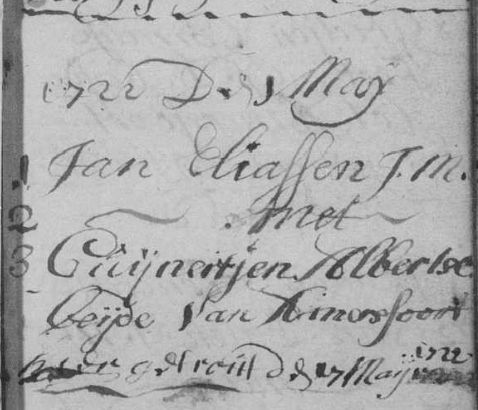 1722 D. 1 May
1 Jan Eliassen J.M.
2 met
3 Cuijneitjen Albertse
beijde van Amersfoort
getrout D 17 Maij 1722